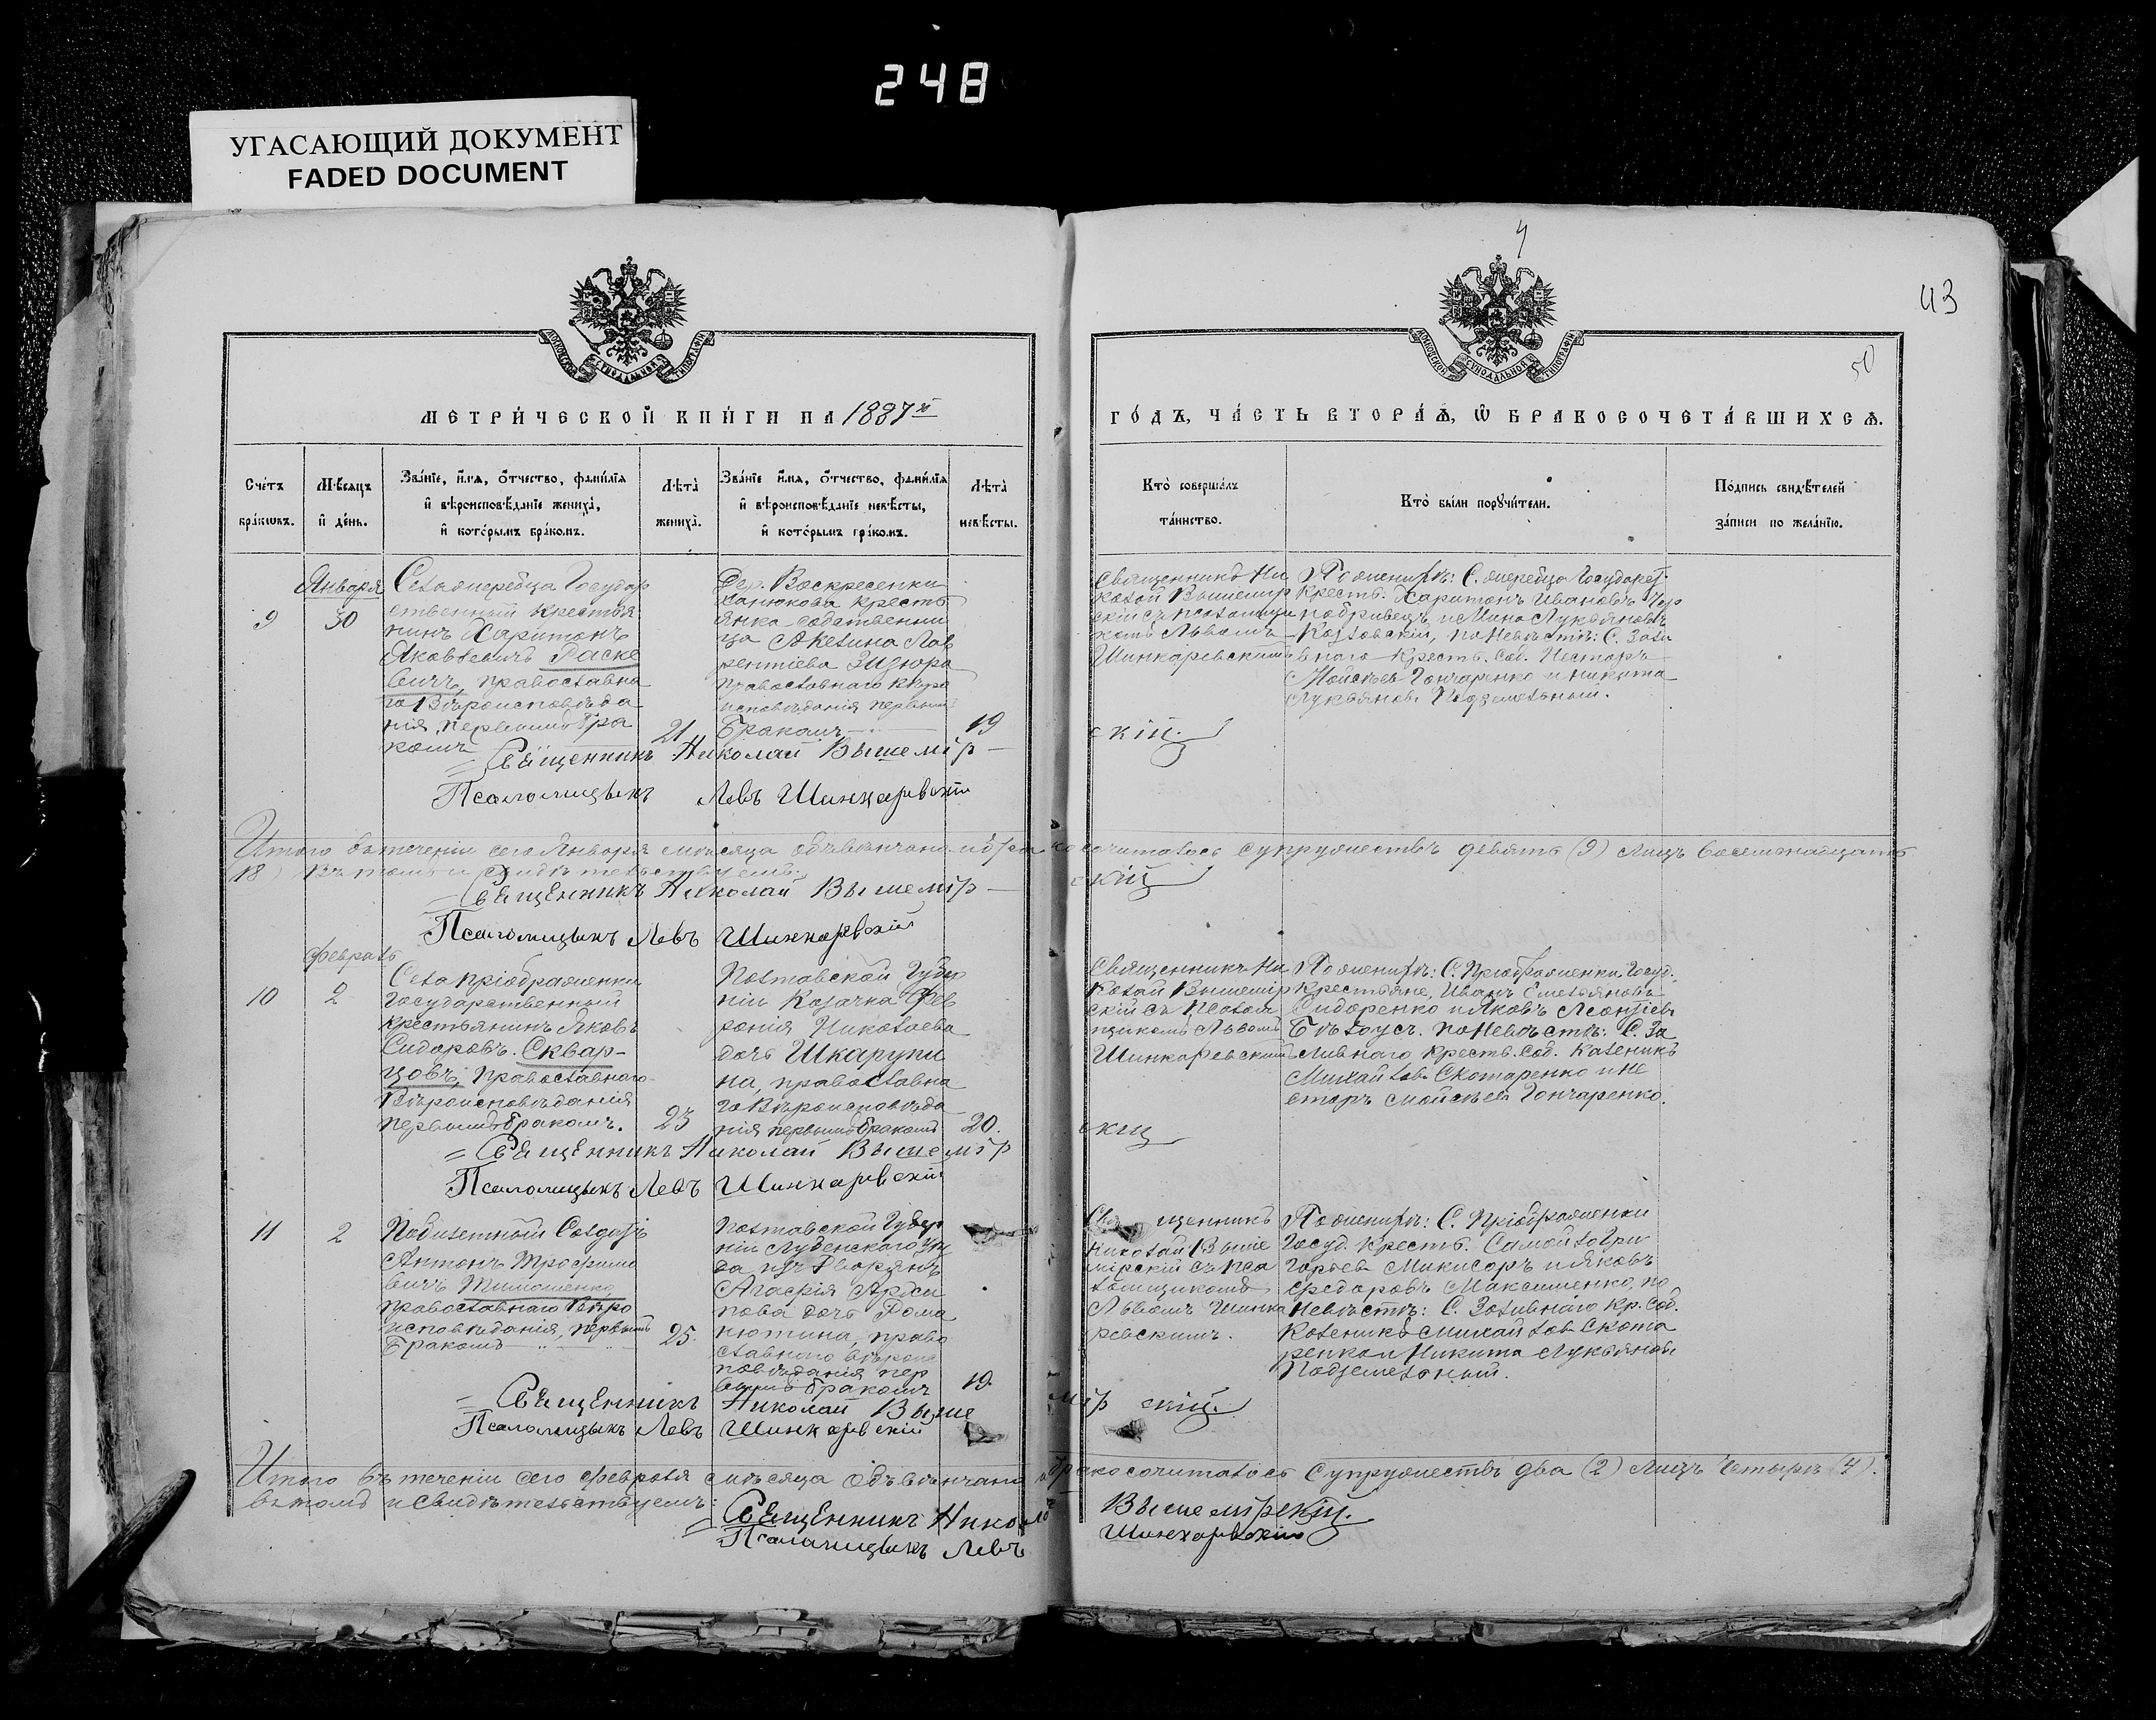 248
УГАСАЮЩИЙ ДОКУМЕНТ
FADED DOCUMENT
4
43
50
МОСКОВСКОЙ СУНОДАЛЬНОЙ ТИПОГРАФІИ
МОСКОВСКОЙ СУНОДАЛЬНОЙ ТИПОГРАФІИ
МЕТРИЧЕСКОЙ КНИГИ НА 1887й
ГОДЪ, ЧАСТЬ ВТОРАѦ, Ѡ БРАКОСОЧЕТАВШИХСѦ.
Счетъ
браковъ.
Мѣсяцъ
и день.
Званіе, имя, отчество, фамилія
и вѣроисповѣданіе жениха,
и которымъ бракомъ.
Лѣта
жениха.
Званіе имя, отчество, фамилія
и вѣроисповѣданіе невѣсты,
и которымъ бракомъ.
Лѣта
невѣсты.
Кто совершалъ
таинство.
Кто были поручители.
Подпись свидѣтелей
записи по желанію.
9
Января
30
Села
Государ
ственный крестья
нинъ Харитонъ
Яковлевичъ Раске
вичъ, православна
го вѣроисповѣда
нія, первымъ бра
комъ
21
Дер. Воскресенки
Ханюкова кресть
янка-собственни
ца Акелина Лав
рентіева
православнаго вѣро
исповѣданія первым
бракомъ
19
Священникъ Ни
колай Вышемір
скій съ псаломщи
комъ Львомъ
Шинкаревскимъ
По женихѣ: С.
Государст.
крест. Харитонъ Ивановъ Чер
и Мина Лукьяновъ
Козловскій, по невѣстѣ: С. Зали
внаго крест. соб. Несторъ
Мойсѣев Гончаренко и Никита
Лукьянов. Подземельный.
Священникъ Николай Вышемір
скій.
Псаломщикъ Левъ Шинкаревскій
Итого въ теченіи сего Января мѣсяца обвѣнчано и бракосочиталось супружествъ девять (9) лицъ восемнадцать
(18) въ томъ и свидѣтельствуемъ:
Священникъ Николай Вышемір
скій
Псаломщикъ Левъ Шинкаревскій
10
Февраль
2
Села Пріображенки
Государственный
крестьянинъ Яковъ
Сидоровъ Сквар-
цовъ, православнаго
вѣроисповѣданія
первымъ бракомъ.
23
Полтавской Губер
ніи Козачка Фев
ронія Николаева
дочь Шкарупи
на, православна
го вѣроисповѣда
нія первымъ бракомъ
20.
Священникъ Ни
колай Вышемір
скій съ псалом
щикомъ Львомъ
Шинкаревскимъ
По женихѣ: С. Пріображенки Госуд.
крестьяне, Иванъ Емельяновъ
Сидоренко и Яковъ Леонтіев
Бѣлоусъ. по невѣстѣ: С. За
ливнаго крест. соб. Каленикъ
Михайлов. Скотаренко и Не
сторъ Мойсѣев Гончаренко.
Священникъ Николай Вышемір
скій
Псаломщикъ Левъ Шинкаревскій
11
2
Побилетный Солдатъ
Антонъ Трофимо
вичъ Тимошенко,
православнаго вѣро
исповѣданія, первымъ
бракомъ
25.
Полтавской Губер
ніи Лубенскаго уѣз
да изъ Дворянъ
Агафія
дочь Рома
нютина, право
славнаго вѣроис
повѣданія пер
вымъ бракомъ
19
Священникъ
Николай Выше
мірскій съ пса
ломщикомъ
Львомъ Шинка
ревскимъ.
По женихѣ: С. Пріображенки
Госуд. крест. Самойло Гри
горьев Микисоръ и Яковъ
Федоровъ Максименко, по
невѣстѣ: С. Заливнаго кр. соб.
Каленикъ Михайлов Скота
ренко и Никита Лукьянов.
Подземельный.
Священникъ Николай Выше
мір скій.
Псаломщикъ Левъ Шинкаревскій
Итого въ теченіи сего Февраля мѣсяца обвѣнчано и бракосочиталось супружествъ два (2) лицъ четыре (4).
въ томъ и свидѣтельствуемъ:
Священникъ Николай
Вышемірскій.
Псаломщикъ Левъ
Шинкаревскій